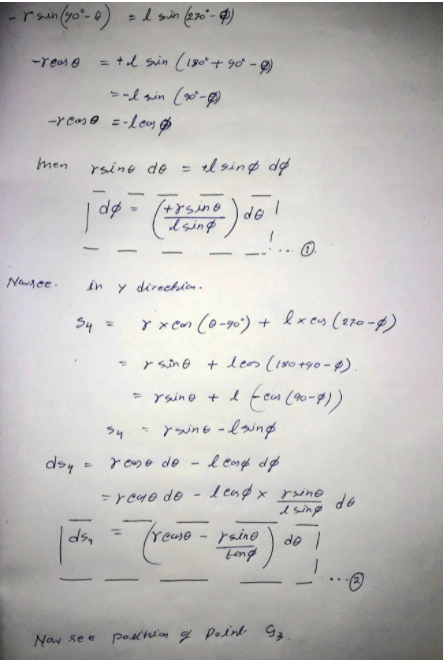 -r sin(90°-θ) = l sin(270°-φ)
-r cos θ = +l sin (180°+90°-φ)
= -l sin (90°-φ)
-r cos θ = -l cos φ
then r sin θ dθ = +l sin φ dφ
dφ = (+r sin θ / l sin φ) dθ ... ①
Now see. in y direction.
S4 = r × cos (θ-90°) + l × cos (270-φ)
= r sin θ + l cos (180+90-φ).
= r sin θ + l (-cos (90-φ))
S4 = r sin θ - l sin φ
dS4 = r cos θ dθ - l cos φ dφ
= r cos θ dθ - l cos φ × r sin θ / l sin φ dθ
dS4 = (r cos θ - r sin θ / tan φ) dθ ... ②
Now see position of Point G3.